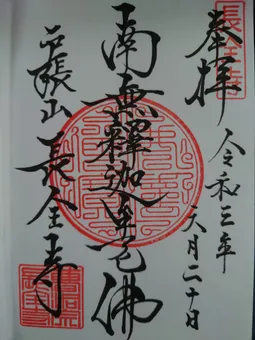 長全寺
奉拝
令和三年
六月二十日
南無釋迦牟尼佛
戸張山 長全寺